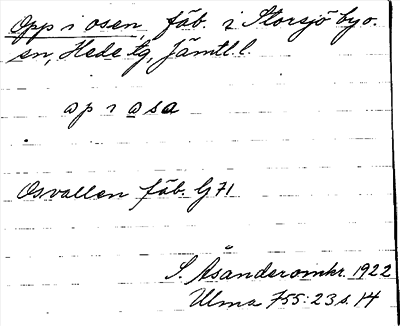 Opp i osen, fäb. i Storsjö by o.
sn, Hede tg, Jämtl. l.
op i osa
Osvallen fäb. G 71
S. Åsander omkr. 1922
Ulma 755:23 s. 14